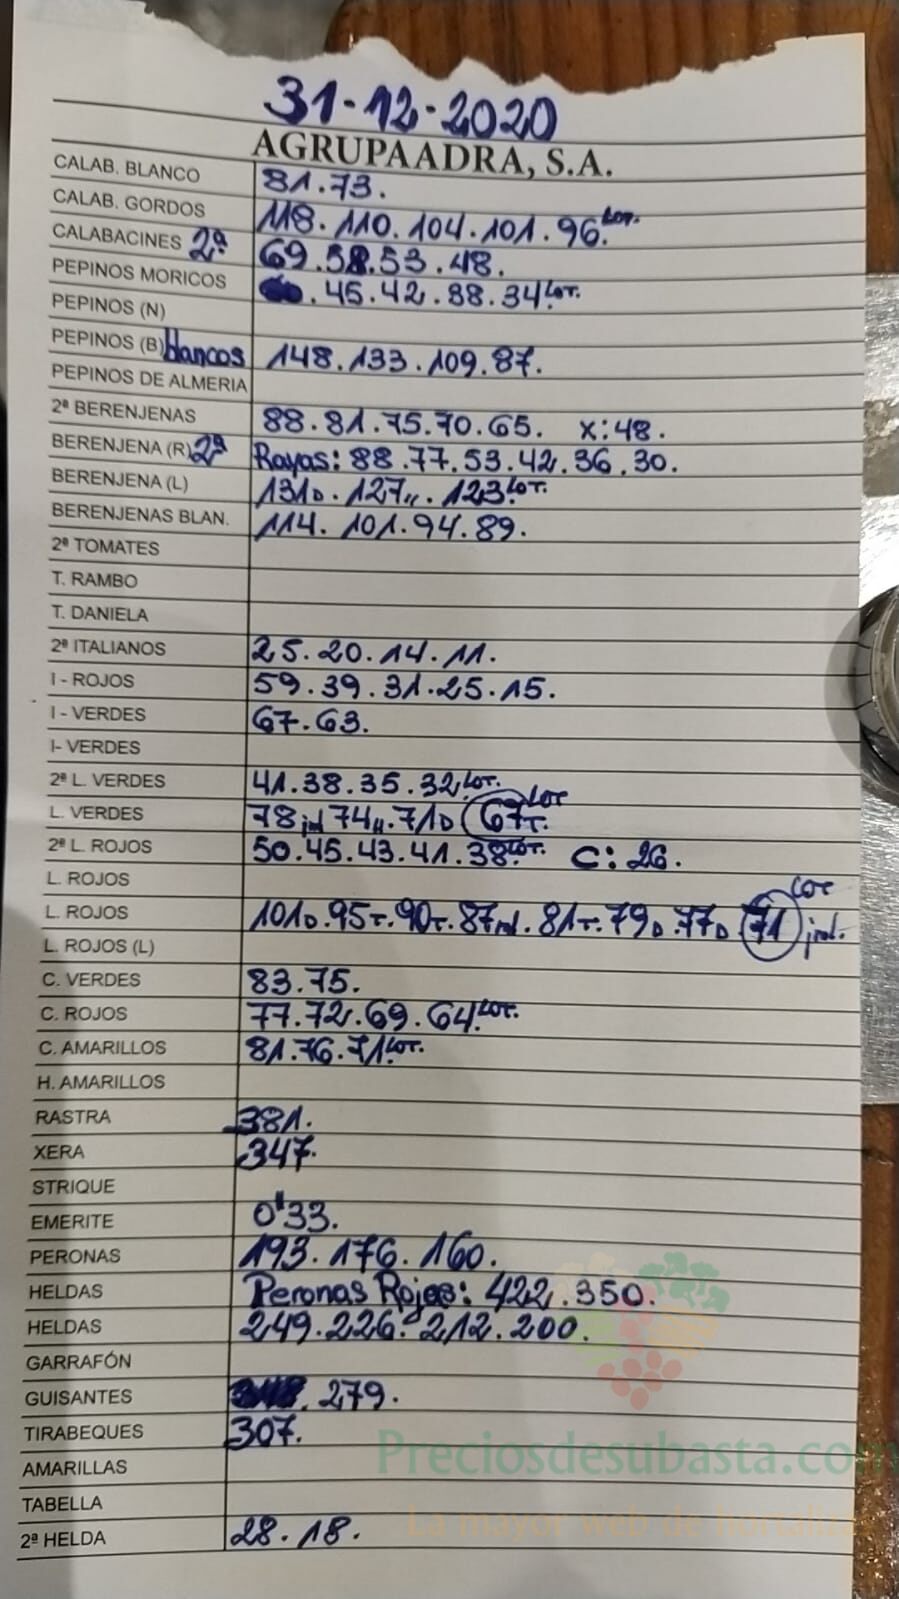 31-12-2020
AGRUPAADRA, S.A.
CALAB. BLANCO 81.73.
CALAB. GORDOS 118.110.104.101.96.LOT.
CALABACINES 2ª 69.58.53.48.
PEPINOS MORICOS .45.42.38.34.LOT.
PEPINOS (N)
PEPINOS (B) blancos 148.133.109.87.
PEPINOS DE ALMERIA
2ª BERENJENAS 88.81.75.70.65. X:48.
BERENJENA (R) 2ª Rayas: 88.77.53.42.36.30.
BERENJENA (L) 131D.127,,.123.LOT.
BERENJENAS BLAN. 114.101.94.89.
2ª TOMATES
T. RAMBO
T. DANIELA
2ª ITALIANOS 25.20.14.11.
I - ROJOS 59.39.31.25.15.
I - VERDES 67.63.
I- VERDES
2ª L. VERDES 41.38.35.32.LOT.
L. VERDES 78 jnl 74,,.71D 67T. LOT
2ª L. ROJOS 50.45.43.41.38.LOT. C:26.
L. ROJOS
L. ROJOS 101D.95T.90T.87jnl.81T.79D.77D.71 jnl. LOT
L. ROJOS (L)
C. VERDES 83.75.
C. ROJOS 77.72.69.64.LOT.
C. AMARILLOS 81.76.71.LOT.
H. AMARILLOS
RASTRA 381.
XERA 347.
STRIQUE
EMERITE 0'33.
PERONAS 193.176.160.
HELDAS Peronas Rojas: 422.350.
HELDAS 249.226.212.200.
GARRAFÓN
GUISANTES .279.
TIRABEQUES 307.
Preciosdesubasta.com
AMARILLAS
TABELLA
La mayor web de hortalizas
2ª HELDA 28.18.